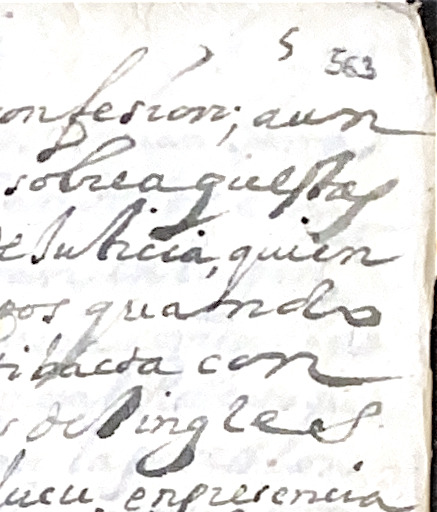 5 563
onfesion; aun
sobre aquestas
de Justicia, quien
gos quando
con
del ingles
en presencia